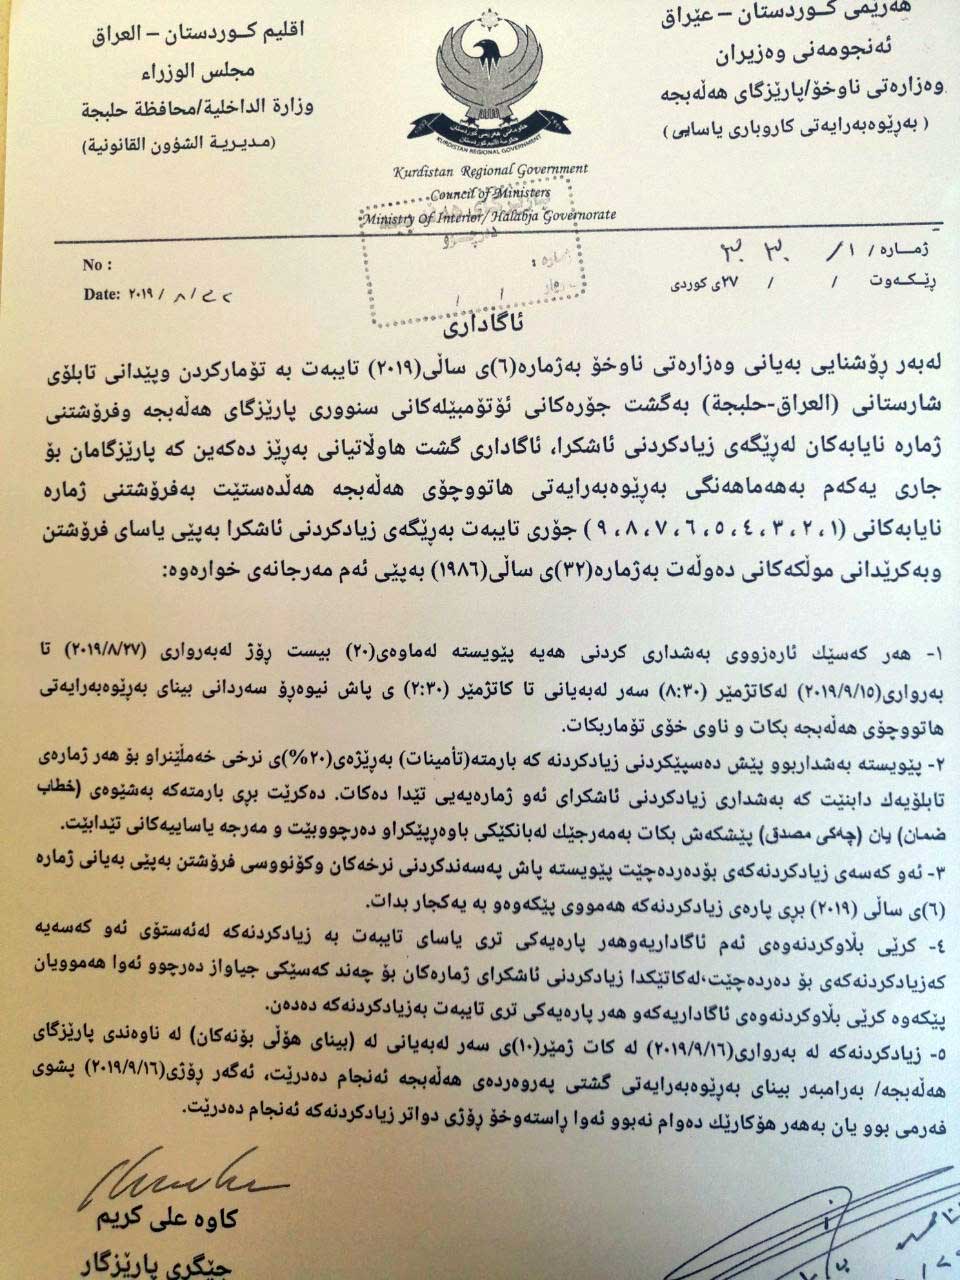 هەرێمی کوردستان – عێراق
ئەنجومەنی وەزیران
وەزارەتی ناوخۆ/پارێزگای هەڵەبجە
( بەڕێوەبەرایەتی کاروباری یاسایی )
اقلیم کوردستان – العراق
مجلس الوزراء
وزارة الداخلیة/محافظة حلبجة
(مدیریة الشؤون القانونیة)
Kurdistan Regional Government
Council of Ministers
Ministry Of Interior/ Halabja Governorate
ژمارە / ١/
ڕێکەوت / / ٢٧ی کوردی
No :
Date: ٢٠١٩ / ٨ /
ئاگاداری
لەبەر ڕۆشنایی بەیانی وەزارەتی ناوخۆ بەژمارە(٦)ی ساڵی(٢٠١٩) تایبەت بە تۆمارکردن وپێدانی تابلۆی
شارستانی (العراق-حلبجة) بەگشت جۆرەکانی ئۆتۆمبێلەکانی سنووری پارێزگای هەڵەبجە وفرۆشتنی
ژمارە نایابەکان لەڕێگەی زیادکردنی ئاشکرا، ئاگاداری گشت هاوڵاتیانی بەڕێز دەکەین کە پارێزگامان بۆ
جاری یەکەم بەهەماهەنگی بەڕێوەبەرایەتی هاتووچۆی هەڵەبجە هەڵدەستێت بەفرۆشتنی ژمارە
نایابەکانی (١، ٢، ٣، ٤، ٥، ٦، ٧، ٨، ٩ ) جۆری تایبەت بەڕێگەی زیادکردنی ئاشکرا بەپێی یاسای فرۆشتن
وبەکرێدانی موڵکەکانی دەوڵەت بەژمارە(٣٢)ی ساڵی(١٩٨٦) بەپێی ئەم مەرجانەی خوارەوە:
١- هەر کەسێك ئارەزووی بەشداری کردنی هەیە پێویستە لەماوەی(٢٠) بیست ڕۆژ لەبەرواری (٢٠١٩/٨/٢٧) تا
بەرواری(٢٠١٩/٩/١٥) لەکاتژمێر (٨:٣٠) سەر لەبەیانی تا کاتژمێر (٢:٣٠) ی پاش نیوەڕۆ سەردانی بینای بەڕێوەبەرایەتی
هاتووچۆی هەڵەبجە بکات و ناوی خۆی تۆماربکات.
٢- پێویستە بەشداربوو پێش دەسپێکردنی زیادکردنە کە بارمتە(تأمینات) بەڕێژەی(٢٠%)ی نرخی خەمڵێنراو بۆ هەر ژمارەی
تابلۆیەك دابنێت کە بەشداری زیادکردنی ئاشکرای ئەو ژمارەیەیی تێدا دەکات. دەکرێت بڕی بارمتەکە بەشێوەی (خطاب
ضمان) یان (چەکی مصدق) پێشکەش بکات بەمەرجێك لەبانکێکی باوەڕپێکراو دەرچووبێت و مەرجە یاساییەکانی تێدابێت.
٣- ئەو کەسەی زیادکردنەکەی بۆدەردەچێت پێویستە پاش پەسەندکردنی نرخەکان وکۆنووسی فرۆشتن بەپێی بەیانی ژمارە
(٦)ی ساڵی (٢٠١٩) بڕی پارەی زیادکردنەکە هەمووی پێکەوەو بە یەکجار بدات.
٤- کرێی بڵاوکردنەوەی ئەم ئاگاداریەوهەر پارەیەکی تری یاسای تایبەت بە زیادکردنەکە لەئەستۆی ئەو کەسەیە
کەزیادکردنەکەی بۆ دەردەچێت،لەکاتێکدا زیادکردنی ئاشکرای ژمارەکان بۆ چەند کەسێکی جیاواز دەرچوو ئەوا هەموویان
پێکەوە کرێی بڵاوکردنەوەی ئاگاداریەکەو هەر پارەیەکی تری تایبەت بەزیادکردنەکە دەدەن.
٥- زیادکردنەکە لە بەرواری(٢٠١٩/٩/١٦) لە کات ژمێر(١٠)ی سەر لەبەیانی لە (بینای هۆڵی بۆنەکان) لە ناوەندی پارێزگای
هەڵەبجە/ بەرامبەر بینای بەڕێوەبەرایەتی گشتی پەروەردەی هەڵەبجە ئەنجام دەدرێت، ئەگەر ڕۆژی(٢٠١٩/٩/١٦) پشوی
فەرمی بوو یان بەهەر هۆکارێك دەوام نەبوو ئەوا ڕاستەوخۆ ڕۆژی دواتر زیادکردنەکە ئەنجام دەدرێت.
کاوە علی کریم
جێگری پارێزگار